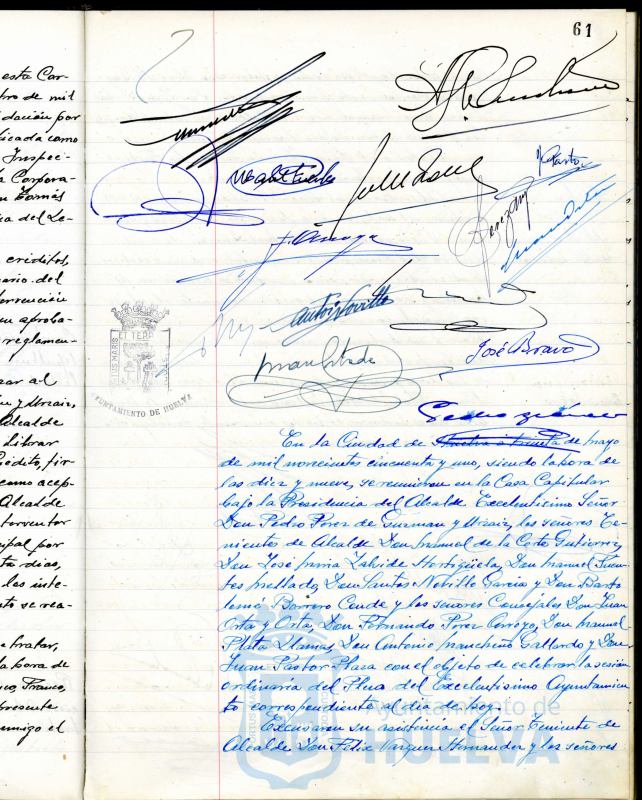 61
este Cor-
tro de mil
dación por
ficada como
Inspec-
a Corpora-
n Tomás
ia del Le-
créditos,
nario del
tervención
su aproba-
reglamen-
zar al
n y Urzaiz,
Alcalde
librar
Crédito, fir-
como acep-
Alcalde
terventor
ipal por
ta días,
los inte-
nto se rea-
e tratar,
la hora de
nco, Franco,
presente
onmigo el
José Bravo
AYUNTAMIENTO DE HUELVA
En la Ciudad de Huelva a treinta de mayo
de mil novecientos cincuenta y uno, siendo la hora de
las diez y nueve, se reunieron en la Casa Capitular
bajo la Presidencia del Alcalde Excelentísimo Señor
Don Pedro Pérez de Guzmán y Urzaiz, los señores Te-
nientes de Alcalde Don Manuel de la Corte Gutiérrez,
Don José María Zalvide Hortigüela, Don Manuel Fuen-
tes Mellado, Don Santos Novillo García y Don Barto
lomé Borrero Conde y los señores Concejales Don Juan
Orta y Orta, Don Fernando Pérez Arroyo, Don Manuel
Plata Llamas, Don Antonio Mancheño Gallardo y Don
Juan Pastor Plaza con el objeto de celebrar la sesión
ordinaria del Pleno del Excelentísimo Ayuntamien
to correspondiente al día de hoy.
Excusaron su asistencia el Señor Teniente de
Alcalde Don Félix Vázquez Hernández y los señores
Ayuntamiento de
HUELVA